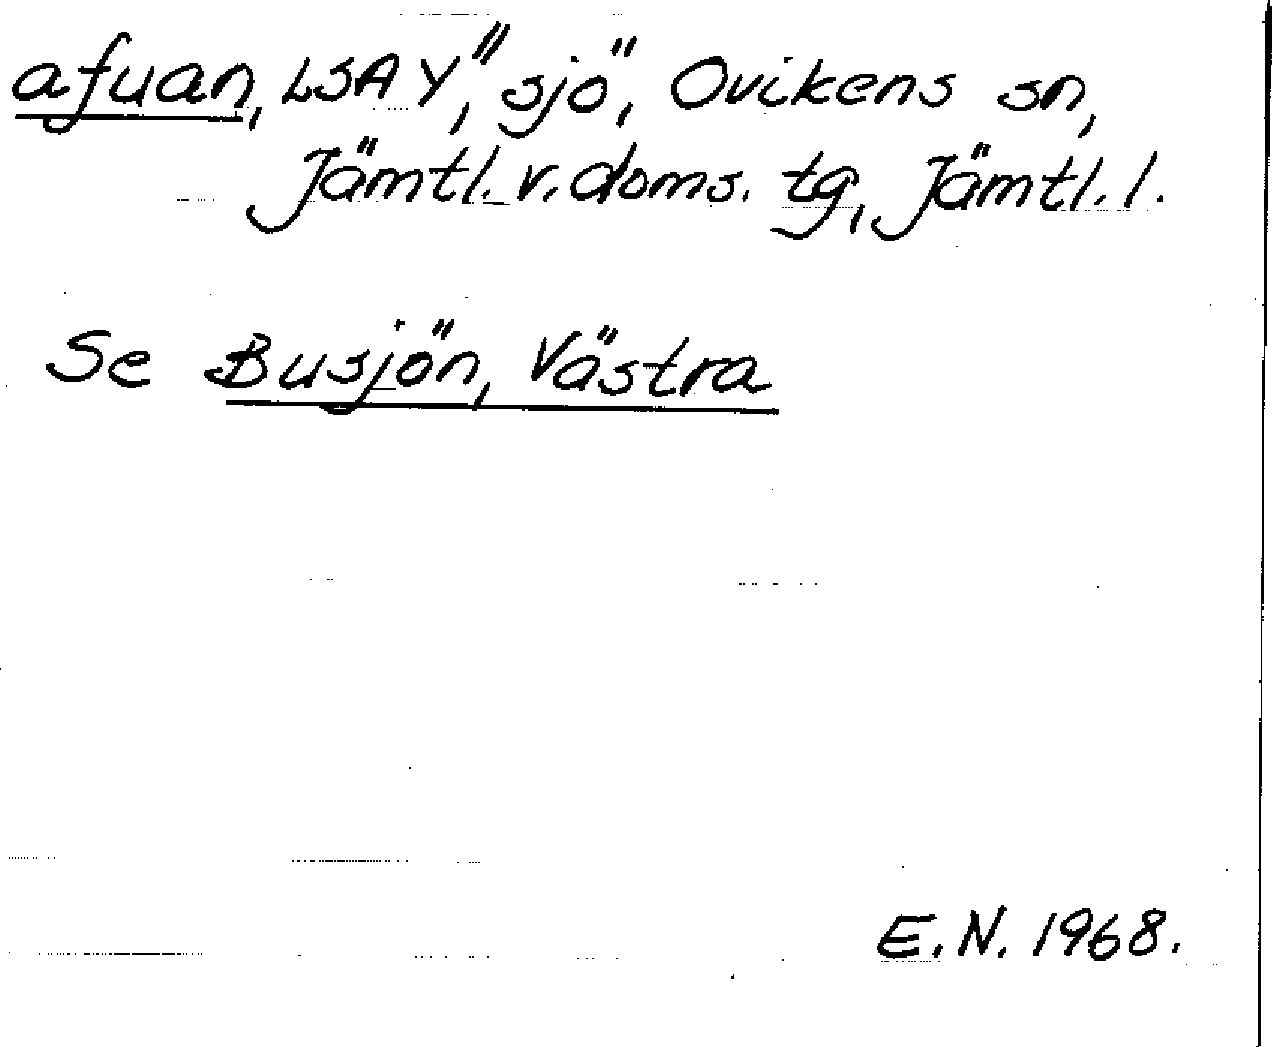 afuan, LSA Y", sjö, Ovikens sn,
Jämtl. v. doms. tg, Jämtl. l.
Se Busjön, Västra
E. N. 1968.